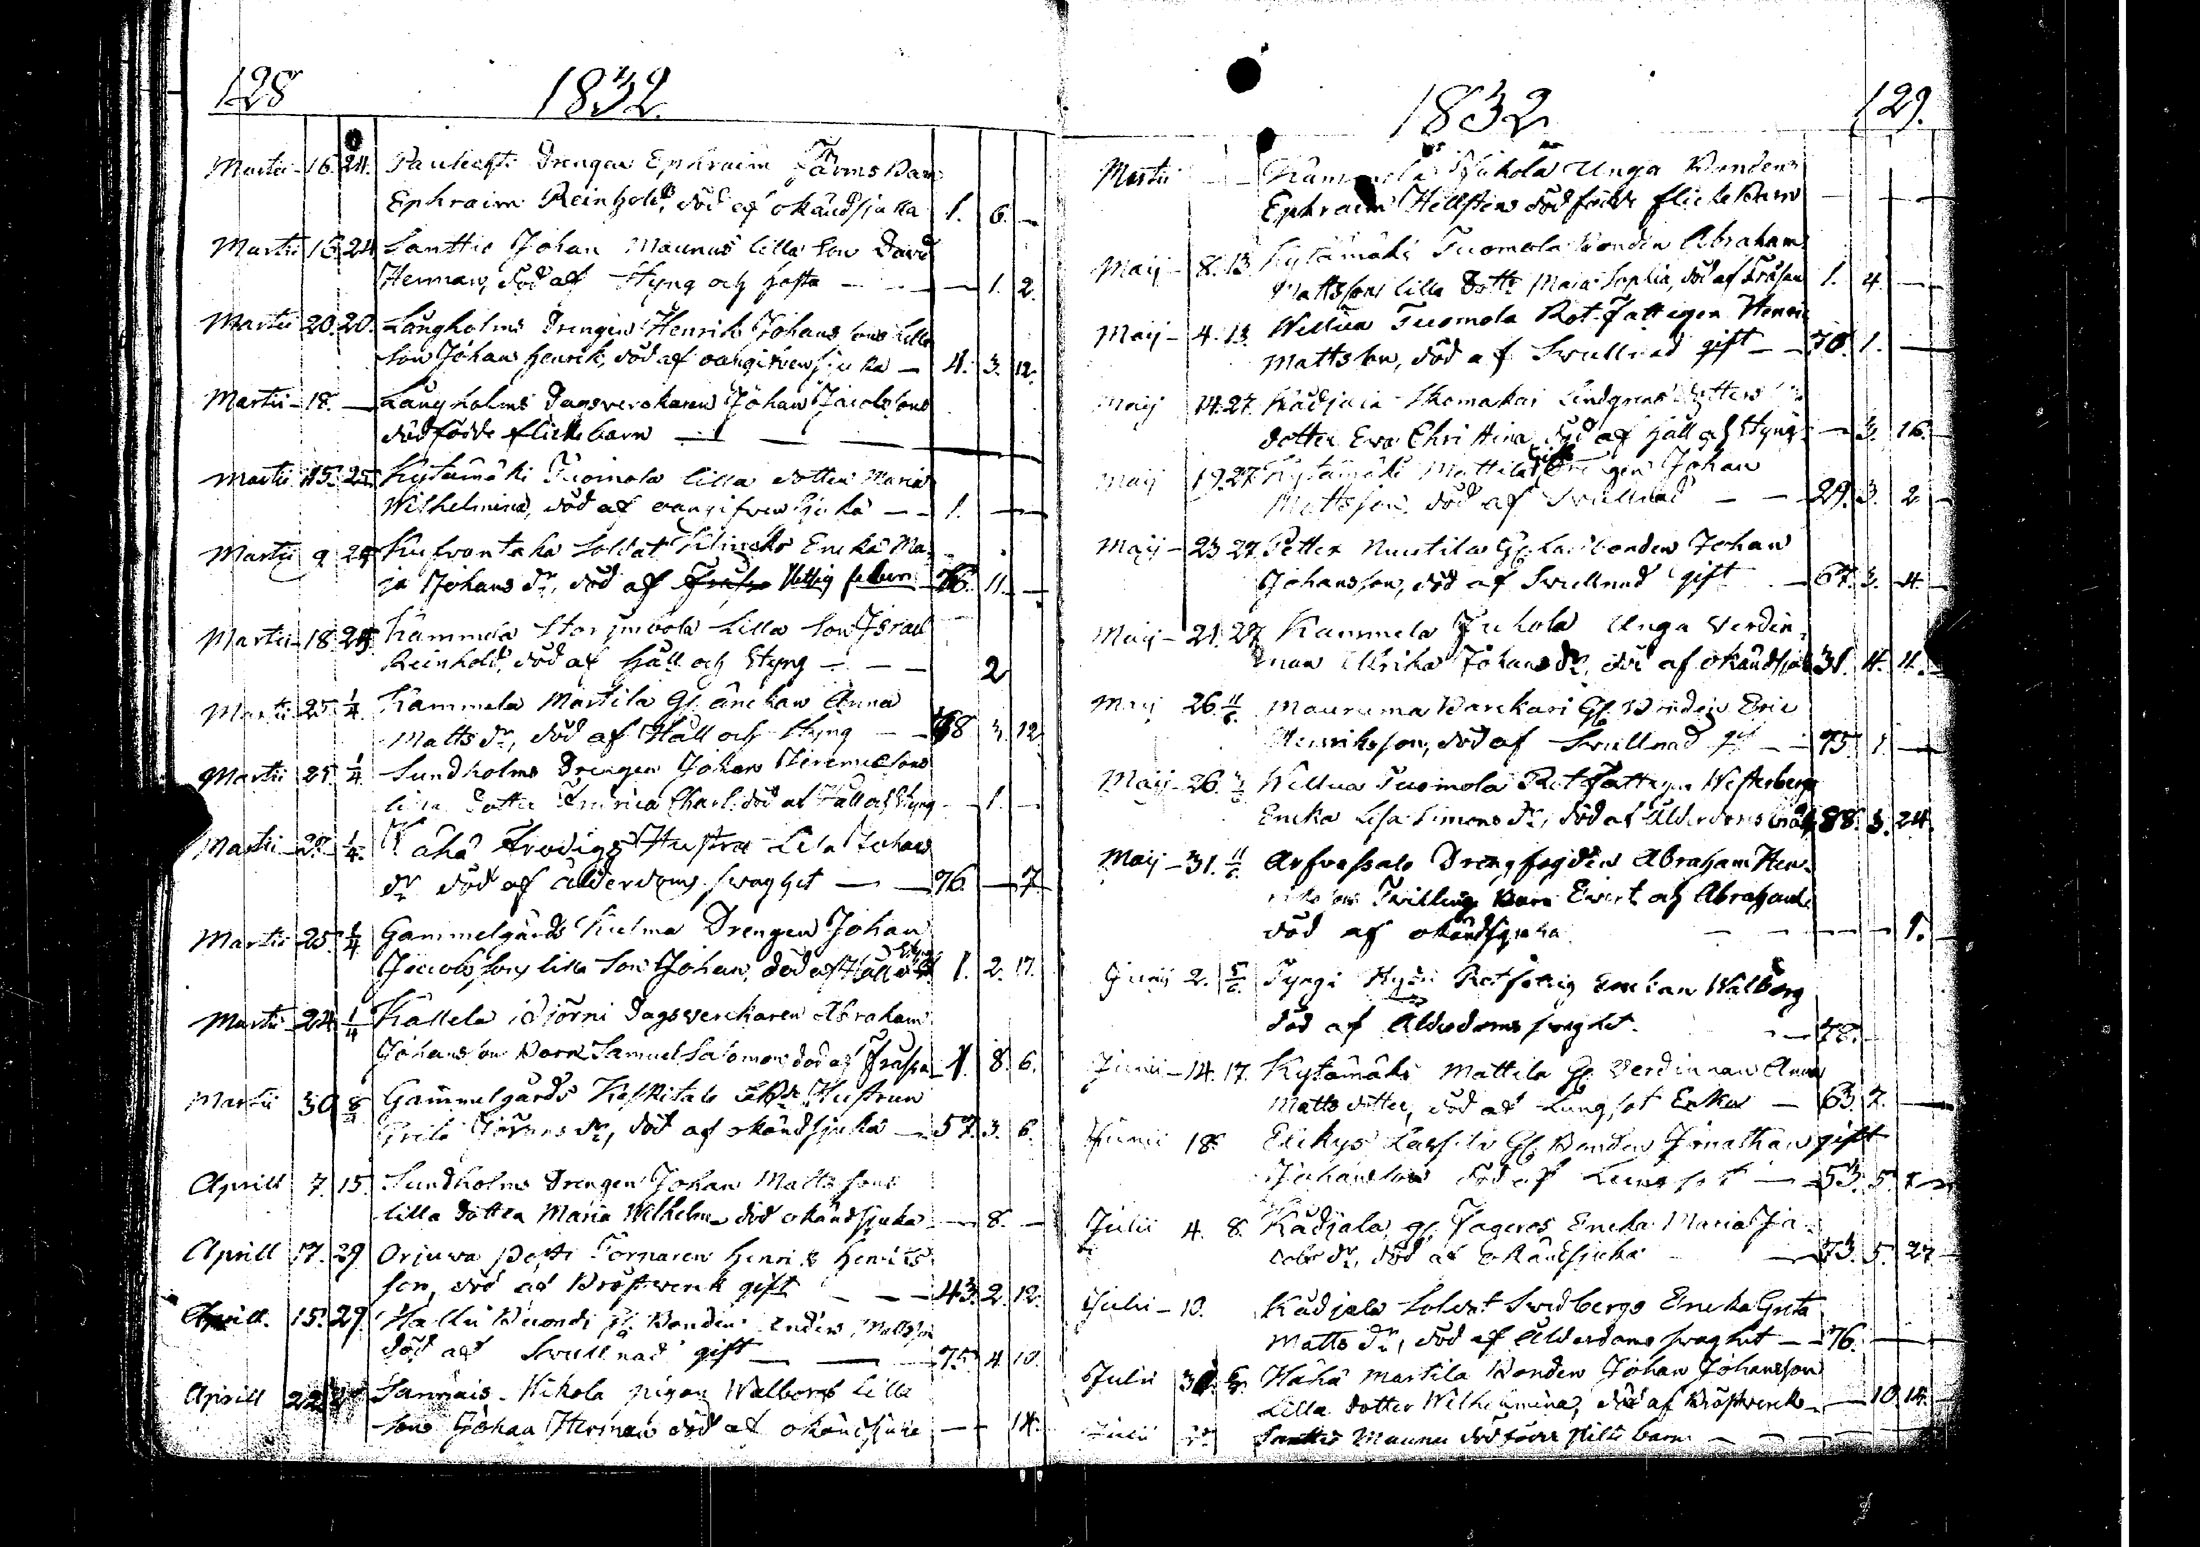 128 1832.
Martii 16. 24. Drengen Ephraim Barn
Ephraim Reinhold, död af okändsjuka 1. 6. —
Martii 16 24 Lanttio Johan Maunus lilla Son David
Herman, död af Styng och hosta — — 1. 2.
Martii 20. 20. Långholms Drengen Henrik Johans sons lilla
Son Johan Henrik, död af oangifven sjuka — 4. 3. 12.
Martii 18. — Långholms Dagsverckaren Johan Jacobssons
dödfödde flickebarn — — —
Martii 15. 25. Kytämäki Tuomola lilla dotter Maria
Wilhelmina, död af oangifven Sjuka — 1. — —
Martii 9 25 Soldat Enckä Ma-
ja Johans dr, död af Hettig feber 76. 11. —
Martii 18. 25 Kammela lilla Son Israel
Reinhold, död af Håll och Styng — — 2
Martii 25. 1/4. Kammela Martila Gl. änckan Anna
Matts dr, död af Håll och Styng — 68 3. 12
Martii 25. 1/4 Sundholms Drengen Johan Jeremiæsons
lilla Dotter Fredrica Charl. död af Håll och Styng — 1. —
Martii 1/4. Hustru Lisa Johans
dr död af ålderdoms svaghet — 76. — 7.
Martii 25. 1/4 Gammelgårds Kulma Drengen Johan
Jacobssons lilla Son Johan, död af Håll o Styng 1. 2. 17.
Martii 24 1/4 Kallela Björni Dagsverckaren Abraham
Johansson Barn Samuel Salomon död af Frassa 1. 8. 6.
Martii 30 Gammelgårds Keskitalo Hustrun
Greta Görans dr, död af okändsjuka — 57. 3. 6.
Aprill 7. 15. Sundholms Drengen Johan Matts sons
lilla dotter Maria Wilhelmina död okändsjuka — 8. —
Aprill 17. 29 Orjuva Torparen Henrik Henrics-
son, död af Bröstverck gift — — 43. 2. 12.
Aprill. 15. 29. Hallu Gl. Bonden Matsson
död af Svullnad gift — — 75. 4. 10.
Aprill 22 Sannais Nikola pigan Walborgs lilla
Son Johan Herman död af okändsjuka — — 14.
1832 129.
Martii — — Kammela Jukola Unga Bondens
Ephraim Hellstens dödfödde flickebarn — — —
Maij 8. 13. Kytämäki Tuomola Bonden Abraham
Mattssons lilla Dottr Maria Sophia, död af Frassen 1. 4. —
Maij 4. 13. Willua Tuomola Rot-Fattigen Henric
Mattsson, död af Svullnad gift — 70. 1. —
Maij 14. 27. Kådjala Skomakar Lindgrens dotters
dotter Eva Christina, död af Håll och Styng — 3. 16.
Maij 19. 27. Kytämäki Mattila Drengen Johan
Mattsson, död af Svullnad — — 29. 3. 2
Maij 23 27. Petter Nuutila Gl. Bonden Johan
Johansson, död af Svullnad gift — 67. 3. 4.
Maij 21. 27. Kammela Jukola Unga Verdin-
nan Ulrika Johans dr, död af okändsjuka 31. 4. 11.
Maij 26. 11/6. Mauruma Gl. Bonden Eric
Henriksson, död af Svullnad gift — 75. 1. —
Maij 26. Willua Tuomola Rot-Fattigen Westerberg
Encka Lisa Simons dr, död af Ålderdoms 88. 3. 24.
Maij 31. 11/6. Arfvassalo Drengfogden Abraham Hen-
riksson Twilling Barn Evert och Abraham
död af okändsjuka — — 1.
Junij 2. 5/6. Tyrgi Enckan Walborg
död af Ålderdoms svaghet. — 78.
Junii 14. 17. Kytämäki Mattila Gl. Verdinnan Anna
Matts dotter, död af Lungsot Encka — 63. 7. —
Junii 18. Erckys Lassila Gl. Bonden Jonathan gift
Johansson död af Lungsot — 53. 5. 7
Julii 4. 8. Kådjala gl. Fageros Encka Maria Ja-
cobs dr, död af okändsjuka — 73. 5. 27
Julii 10. Kådjala Soldat Svedbergs Encka Greta
Matts dr, död af Ålderdoms svaghet — 76. — —
Julii Hähä Martila Bonden Johan Johansson
lilla dotter Wilhelmina, död af Bröstverck — 10. 14.
Julii Lanttio Maunu dödfödde pilte barn — — —